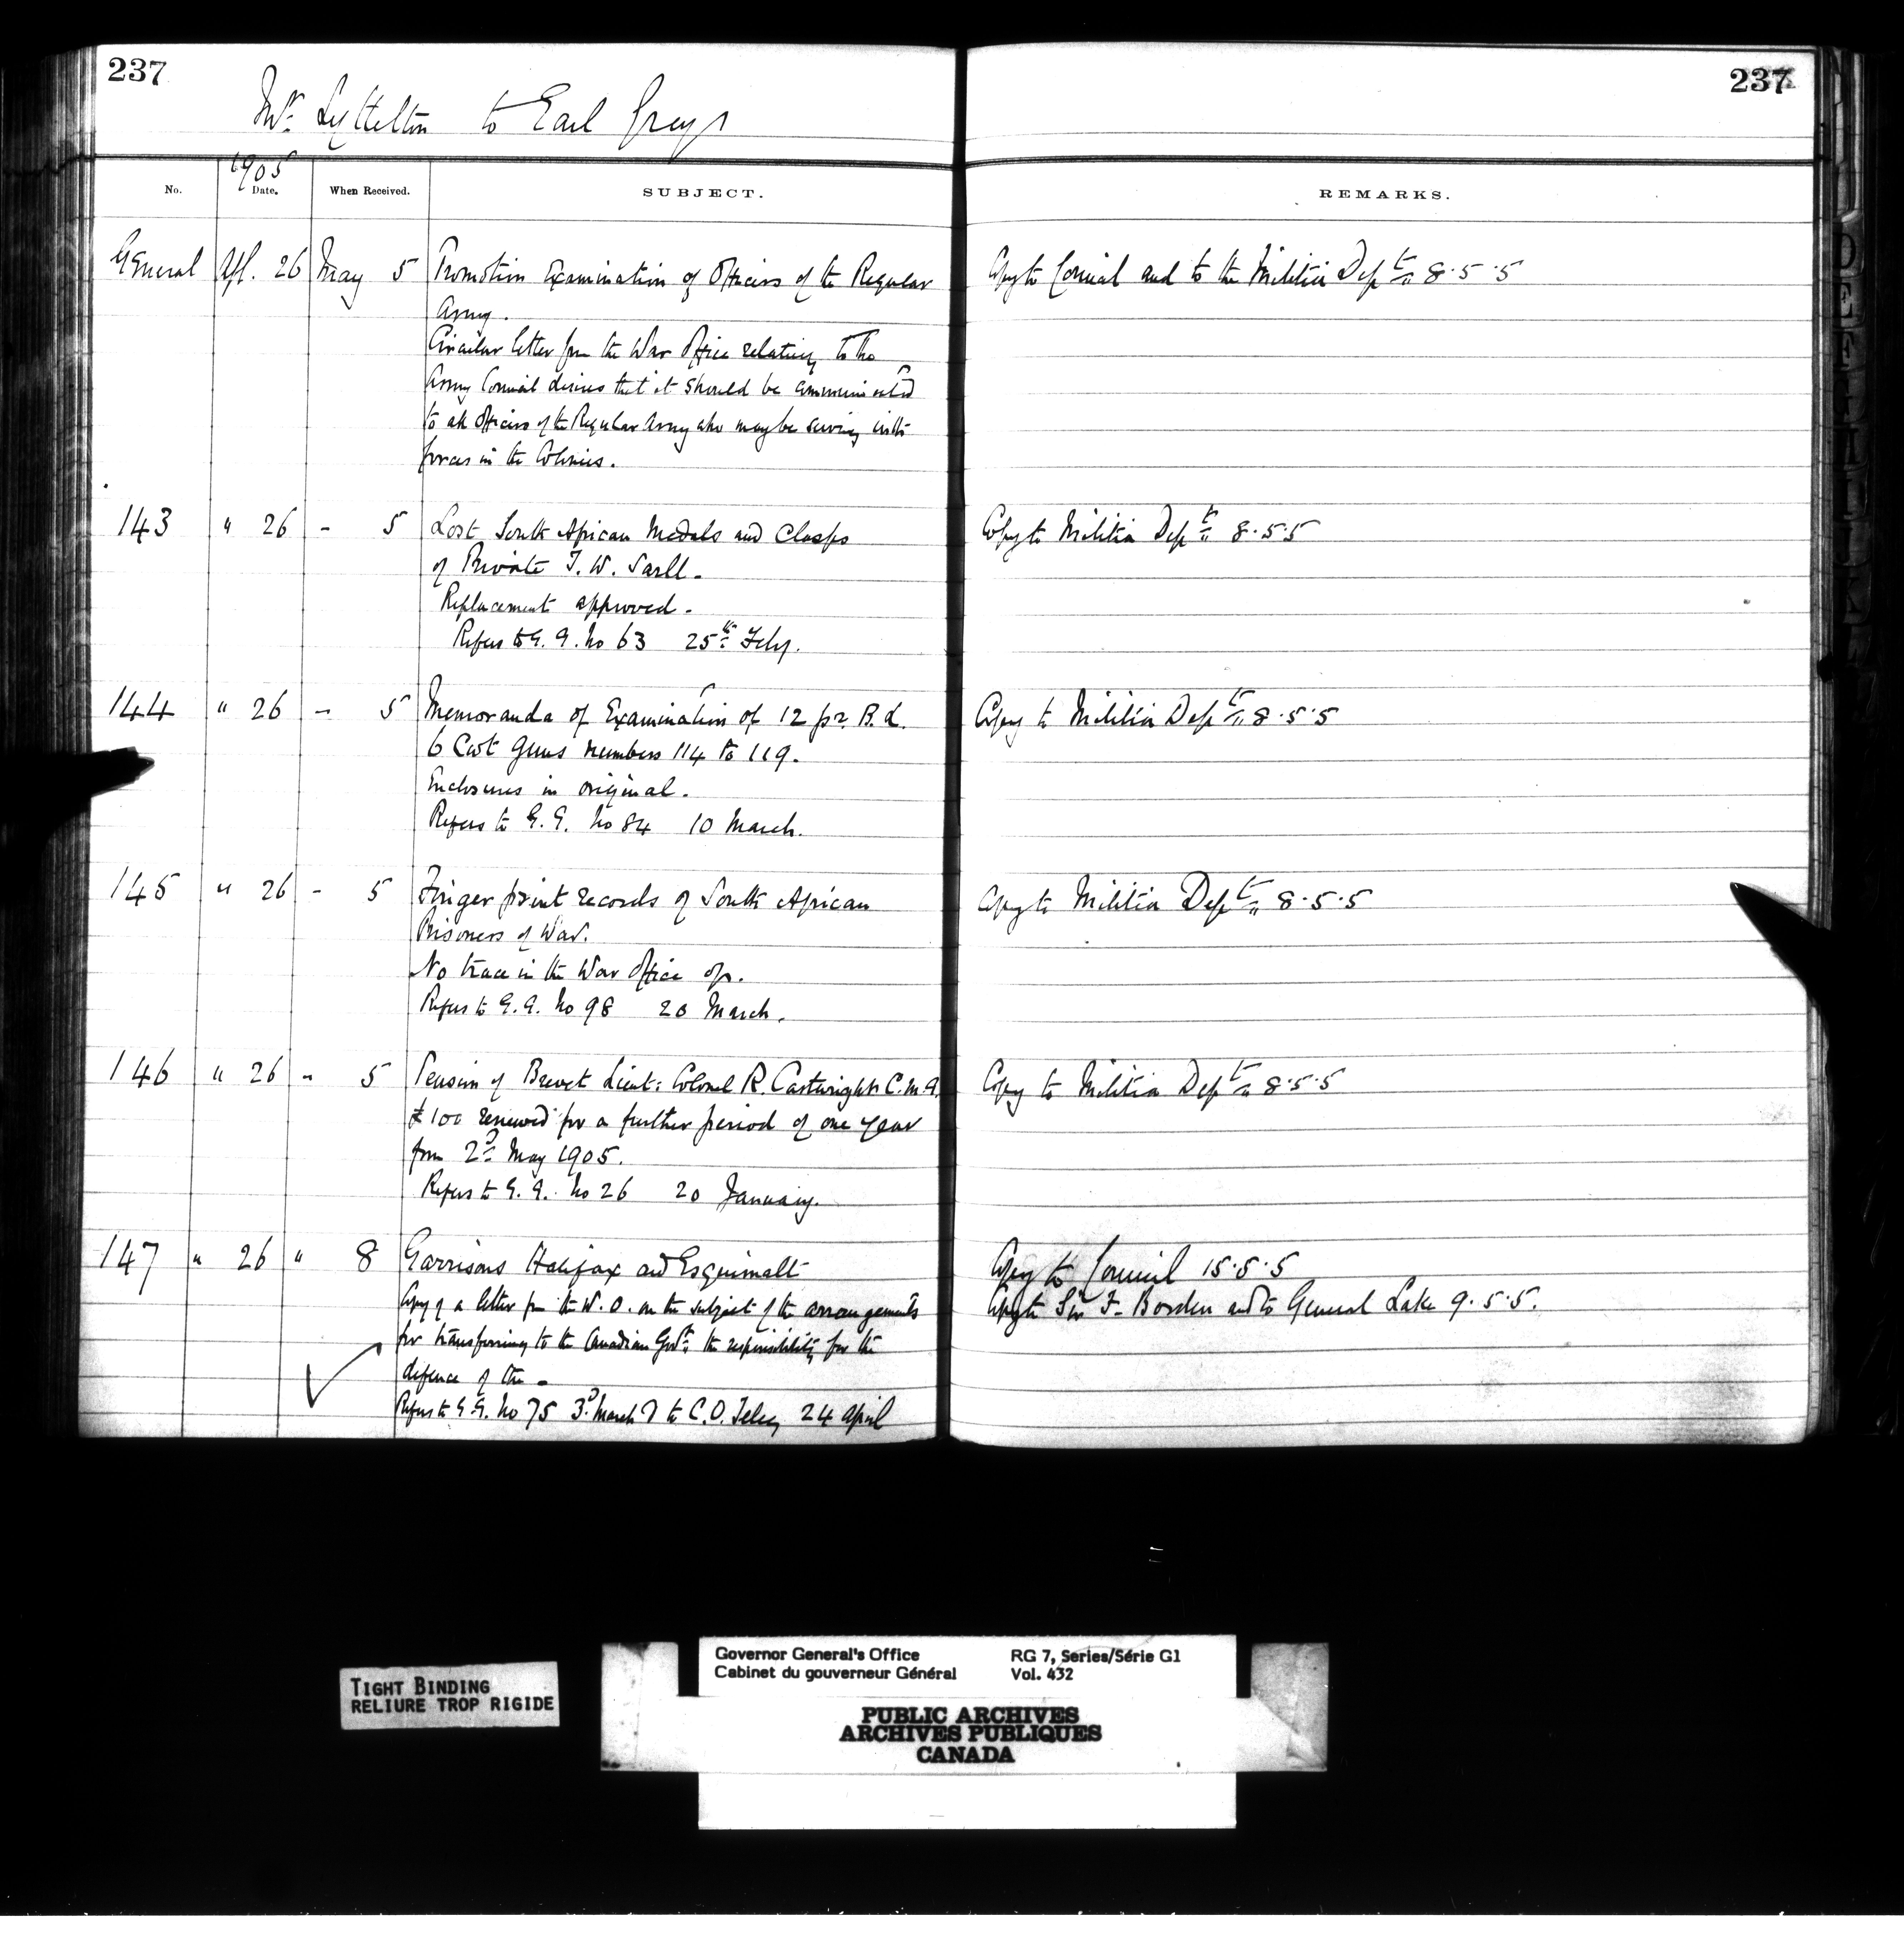 237
237
Mr. Lyttelton to Earl Grey
1905
No. Date. When Received. SUBJECT. REMARKS.
General Apl. 26 May 5 Promotion Examination of Officers of the Regular Copy to Council and to the Militia Dept 8.5.5
Army.
Circular letter from the War Office relating to the
Army Council desires that it should be communicated
to all Officers of the Regular Army who may be serving with
forces in the Colonies.
143 " 26 - 5 Lost South African Medals and Clasps Copy to Militia Dept 8.5.5
of Private T. W. Sarll.
Replacement approved.
Refers to G.G. No 63 25th Feby.
144 " 26 - 5 Memoranda of Examination of 12 pr. B.L. Copy to Militia Dept 8.5.5
6 Cwt Guns numbers 114 to 119.
Enclosures in original.
Refers to G.G. No 84 10 March.
145 " 26 - 5 Finger print records of South African Copy to Militia Dept 8.5.5
Prisoners of War.
No trace in the War Office of.
Refers to G.G. No 98 20 March.
146 " 26 - 5 Pension of Brevet Lieut: Colonel R. Cartwright C.M.G. Copy to Militia Dept 8.5.5
£100 renewed for a further period of one year
from 2d May 1905.
Refers to G.G. No 26 20 January.
147 " 26 " 8 Garrisons Halifax and Esquimalt Copy to Council 15.5.5
Copy of a letter from the W.O. on the subject of the arrangements Copy to Sir F. Borden and to General Lake 9.5.5.
for transferring to the Canadian Govt. the responsibility for the
defence of the -
Refers to G.G. No 75 3d March & to C.O. Teleg 24 April
Governor General's Office RG 7, Series/Série G1
Cabinet du gouverneur Général Vol. 432
TIGHT BINDING
RELIURE TROP RIGIDE
PUBLIC ARCHIVES
ARCHIVES PUBLIQUES
CANADA